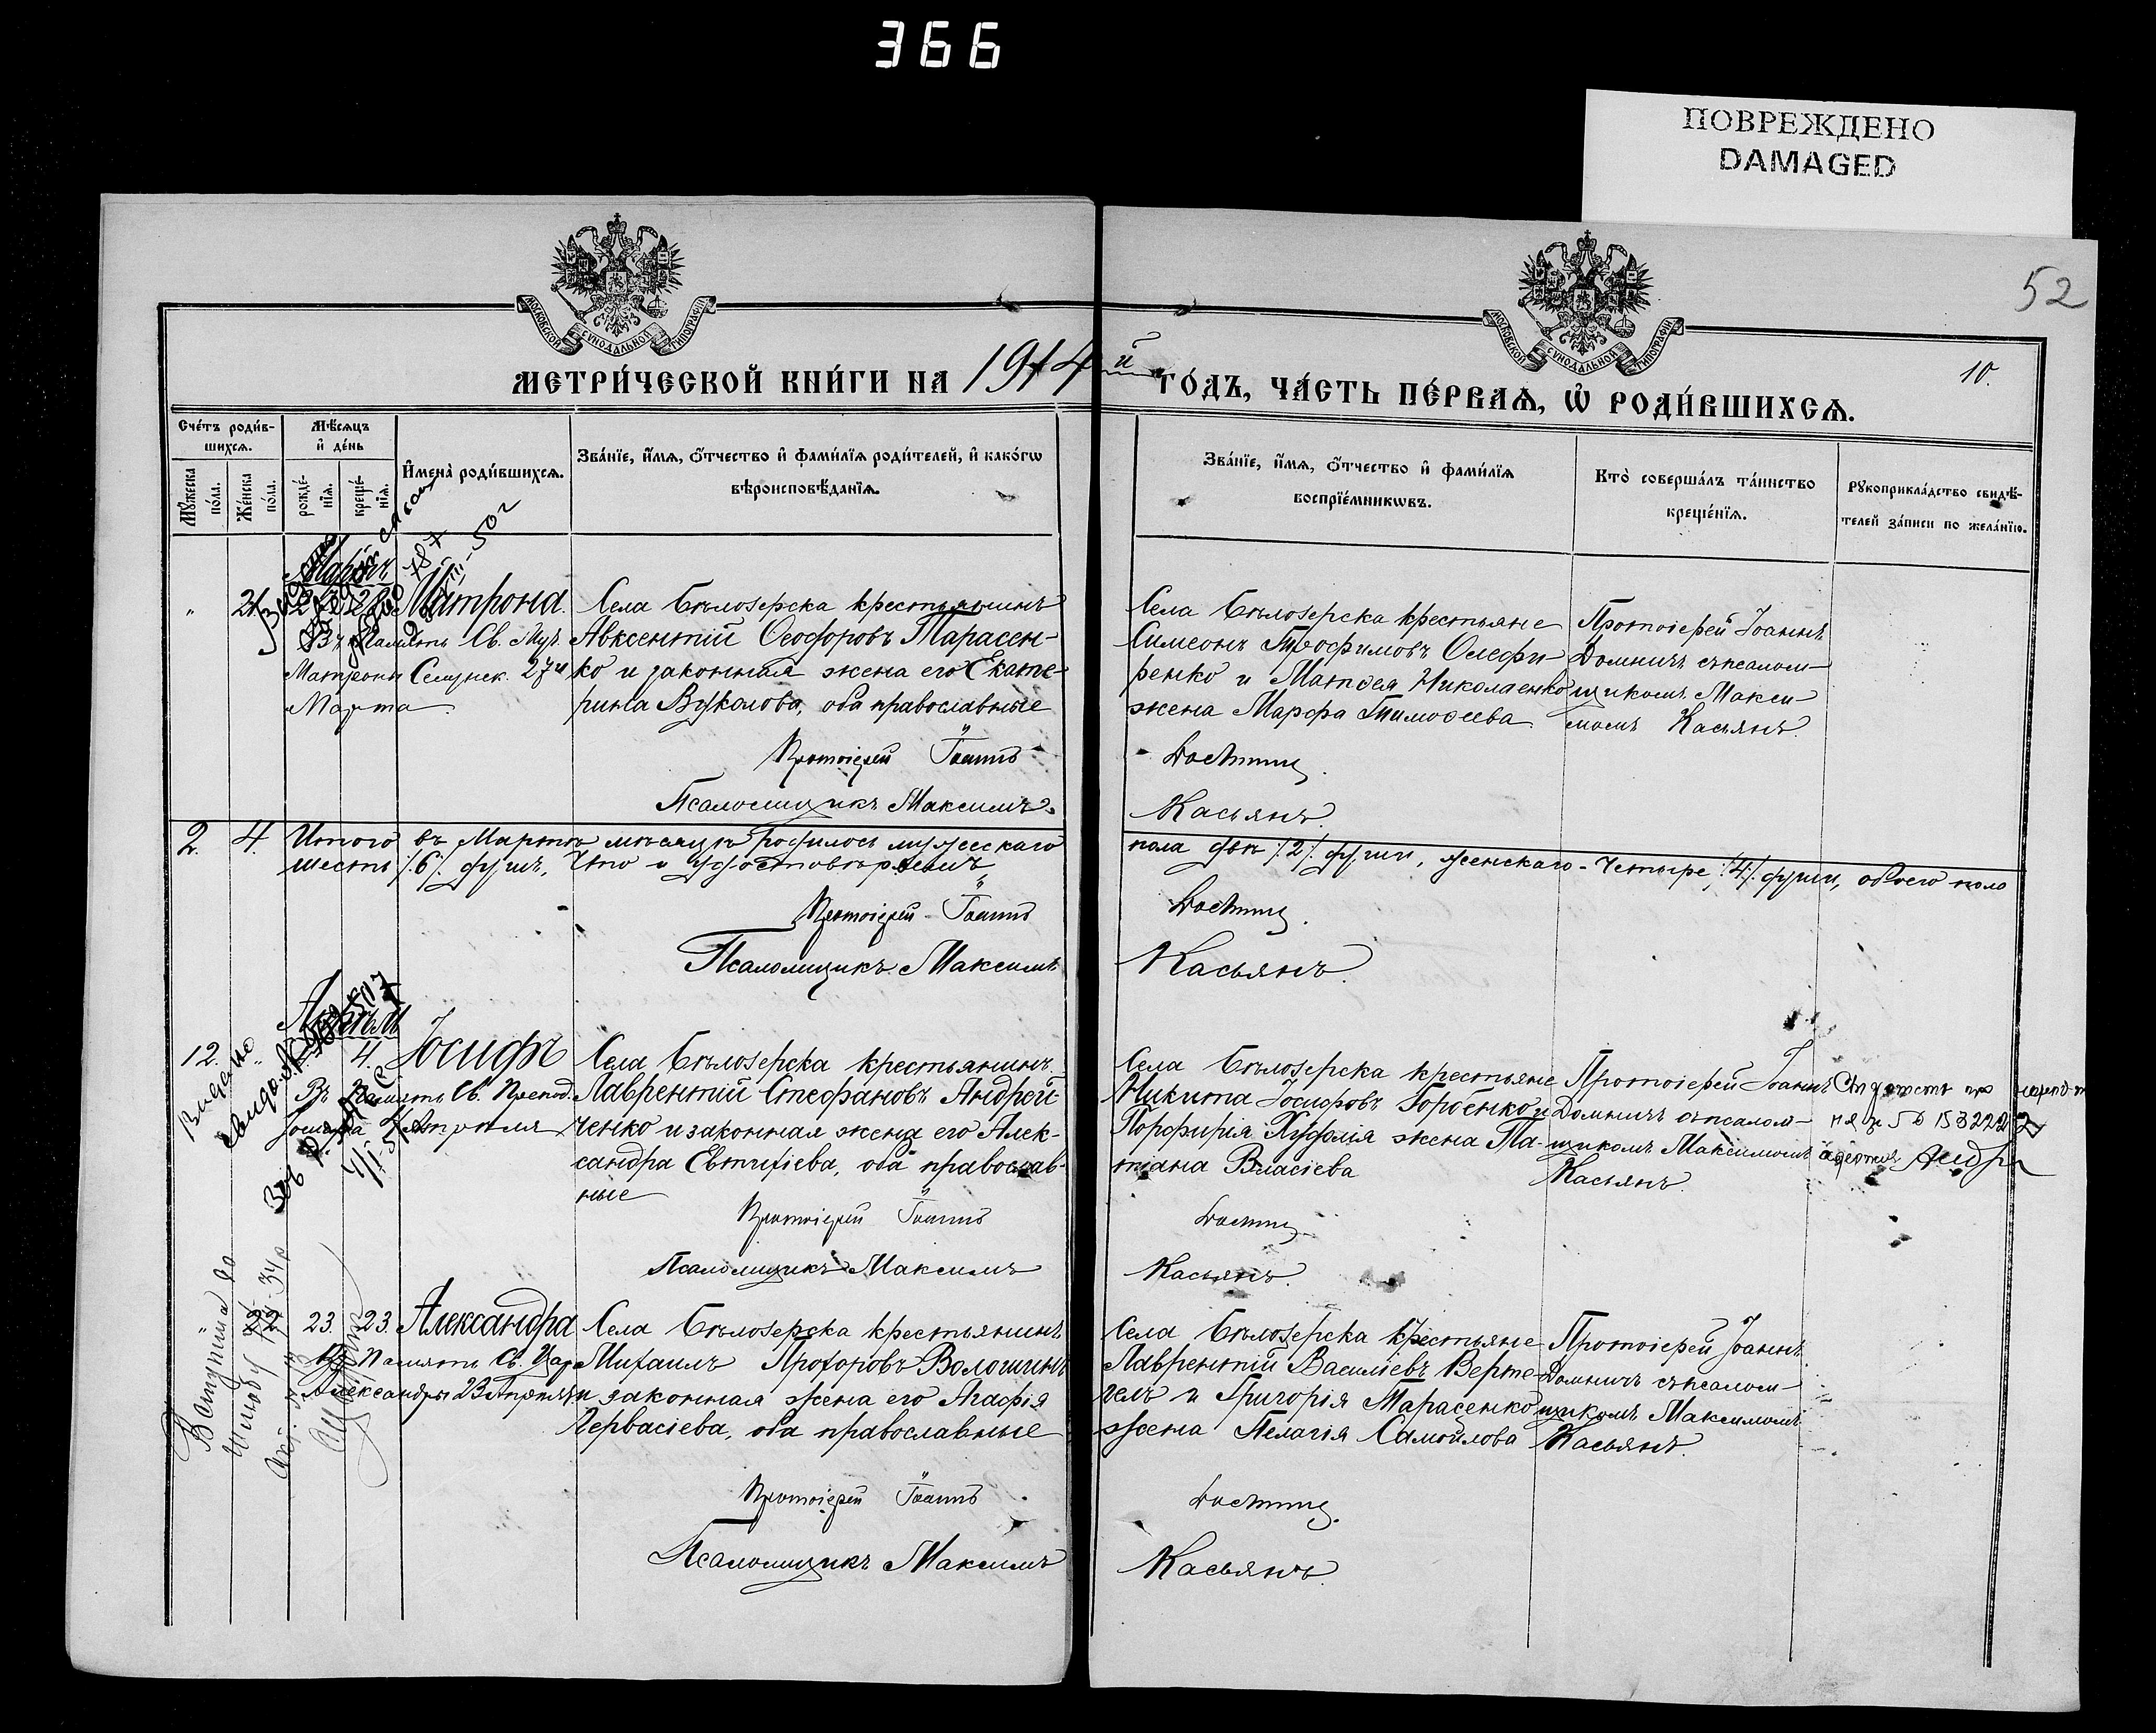 366
ПОВРЕЖДЕНО
DAMAGED
52
10.
МОСКОВСКОЙ СУНОДАЛЬНОЙ ТИПОГРАФІИ
МОСКОВСКОЙ СУНОДАЛЬНОЙ ТИПОГРАФІИ
МЕТРИ́ЧЕСКОЙ КНИ́ГИ НА 1914 й ГО́ДЪ, ЧА́СТЬ ПЕ́РВАѦ, Ѡ҆ РОДИ́ВШИХСѦ.
Сче́тъ роди́в-
шихсѧ.
Мѣ́сѧцъ
и҆ де́нь
Мꙋ́жеска по́ла.
Же́нска по́ла.
рожде́-
нїѧ.
креще́-
нїѧ.
И҆мена̀ роди́вшихсѧ.
Зва́нїе, и҆́мѧ, ѻ҆́тчество и҆ фами́лїѧ роди́телей, и҆ како́гѡ
вѣроисповѣ́данїѧ.
Зва́нїе, и҆́мѧ, ѻ҆́тчество и҆ фами́лїѧ
воспрїе́мникѡвъ.
Кто̀ соверша́лъ та́инство
креще́нїѧ.
Рꙋкоприкла́дство свидѣ́-
телей за́писи по жела́нїю.
Мартъ
21. 27. 28. Матрона.
Въ память Св. Муч.
Матроны Селунск. 27го
Марта
Села Бѣлозерска крестьянинъ
Авксентій Ѳеодоровъ Тарасен-
ко и законная жена его Екате-
рина Вуколова, оба православные
Протоіерей Іоаннъ
Псаломщикъ Максимъ
Села Бѣлозерска крестьяне
Симеонъ Трофимовъ Олефи-
ренко и Матѳея Николаенко
жена Марфа Тимоѳеева
Домнич
Касьянъ.
Протоіерей Іоаннъ
Домничъ съ псалом-
щикомъ Макси-
момъ Касьянъ.
2. 4. Итого въ Мартѣ мѣсяцѣ родилось мужескаго пола двѣ /:2/: души, женскаго - четыре /:4/: души, обоего пола
шесть /:6/: душъ, что и удостовѣряемъ
Протоіерей Іоаннъ Домнич
Псаломщикъ Максимъ Касьянъ.
12. 4. Іосифъ
Въ память Св. Препод.
Іосифа 4 Апрѣля
Села Бѣлозерска крестьянинъ
Лаврентій Стефановъ Андрей-
ченко и законная жена его Алек-
сандра Евтихіева, оба православ-
ные
Протоіерей Іоаннъ
Псаломщикъ Максимъ
Села Бѣлозерска крестьяне
Никита Іосифовъ Горбенко и
Порфирія жена Та-
тіана Власіева
Домнич
Касьянъ.
Протоіерей Іоаннъ
Домничъ съ псалом-
щикомъ Максимомъ
Касьянъ.
23. 23. Александра
Въ память Св. Цар.
Александры 23 Апрѣля
Села Бѣлозерска крестьянинъ
Михаилъ Прохоровъ Волошинъ
и законная жена его Агафія
Гервасіева, оба православные
Протоіерей Іоаннъ
Псаломщикъ Максимъ
Села Бѣлозерска крестьяне
Лаврентій Василіевъ Верте-
гелъ и Григорія Тарасенко
жена Пелагія Самойлова
Домнич
Касьянъ.
Протоіерей Іоаннъ
Домничъ съ псалом-
щикомъ Максимомъ
Касьянъ.